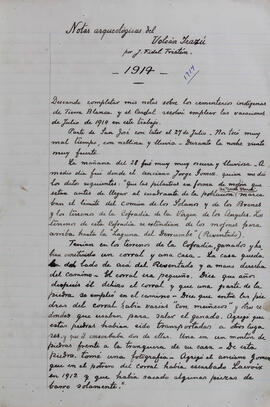 Notas arqueológicas del
Volcán Irazú
por J. Fidel Tristán
— 1914 —
1914
Deseando completar mis notas sobre los cementerios indígenas
de Tierra Blanca, y el Cristal resolví emplear las vacaciones
de Julio de 1914 en este trabajo.
Partí de San José con Ester el 27 de Julio. No hizo muy
mal tiempo, con neblina y lluvia. Durante la noche viento
muy fuerte.
La mañana del 28 fué muy muy oscura y lluviosa. A
medio día fuí donde el anciano Jorge Gomez, quien me dió
los datos siguientes: "que los pilaritos en forma de mojón que
antes de llegar al cuadrante de la población: marca-
ban el límite del común de los Solanos y de los Brenes
y los terrenos de la Cofradía de la Virgen de los Angeles. Los
terrenos de esta Cofradía se extendían de los mojones para
arriba hasta la Laguna del Derrumbe" (Reventado).
Tenían en los terrenos de la Cofradía, ganados y ha-
bían construido un corral y una casa. La casa queda-
ba del lado de acá del Reventado y a mano derecha
del camino. El corral era pequeño. Dice que así
después él deshizo el corral y que una parte de la
piedra se empleó en el camino. Dice que entre las pie-
dras del corral había varias con "meneicos" y
dondas que usaban para salar el ganado. Agregó que
estas piedras habían sido transportadas a otros luga-
res, y él conservaba dos de ellas. Una en un montón de
piedras frente a la tranquera de su casa. De esta
piedra tomé una fotografía. Agregó el anciano Gomez
que en el potrero del corral había escarbado Lacroix
en 1913 y que había sacado algunas piezas de
barro solamente."